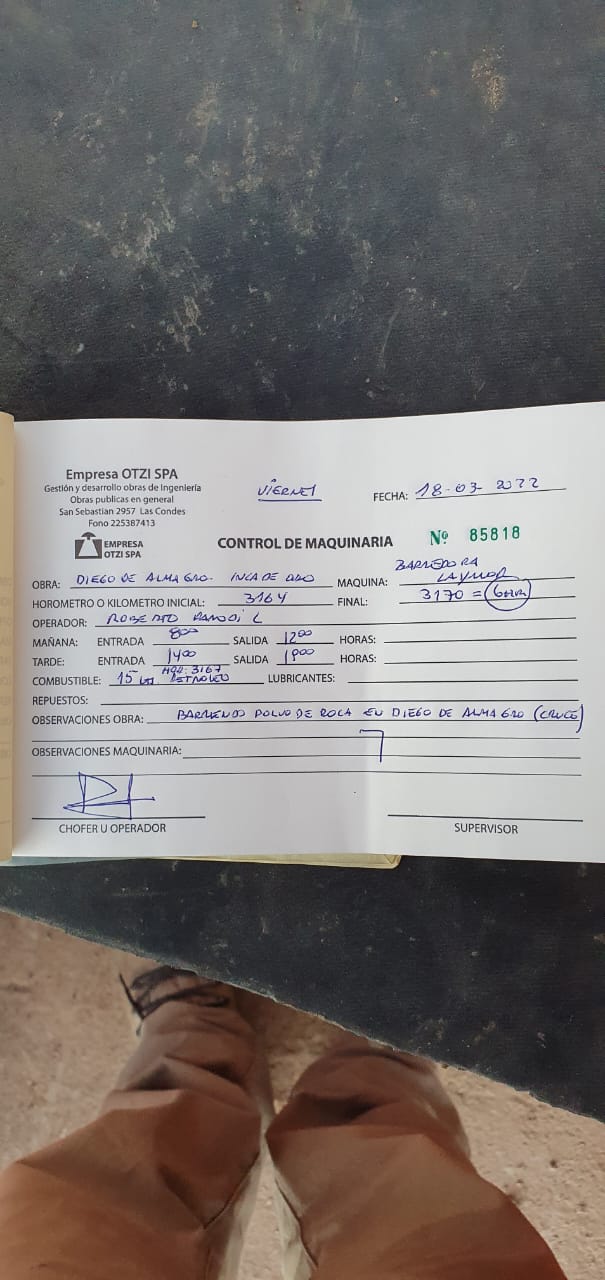 Empresa OTZI SPA
Gestión y desarrollo obras de Ingeniería
Obras publicas en general
San Sebastian 2957 Las Condes
Fono 225387413
EMPRESA
OTZI SPA
VIERNES
FECHA: 18-03-2022
CONTROL DE MAQUINARIA
Nº 85818
OBRA: DIEGO DE ALMAGRO. INCA DE ORO MAQUINA: BARREDORA
HOROMETRO O KILOMETRO INICIAL: 3164 FINAL: 3170 = 6HR
OPERADOR: ROBERTO
MAÑANA: ENTRADA 800 SALIDA 1200 HORAS:
TARDE: ENTRADA 1400 SALIDA 1800 HORAS:
HOR: 3167
COMBUSTIBLE: 15 LTS PETROLEO LUBRICANTES:
REPUESTOS:
OBSERVACIONES OBRA: BARRIENDO POLVO DE ROCA EN DIEGO DE ALMAGRO (CRUCE)
OBSERVACIONES MAQUINARIA:
CHOFER U OPERADOR
SUPERVISOR